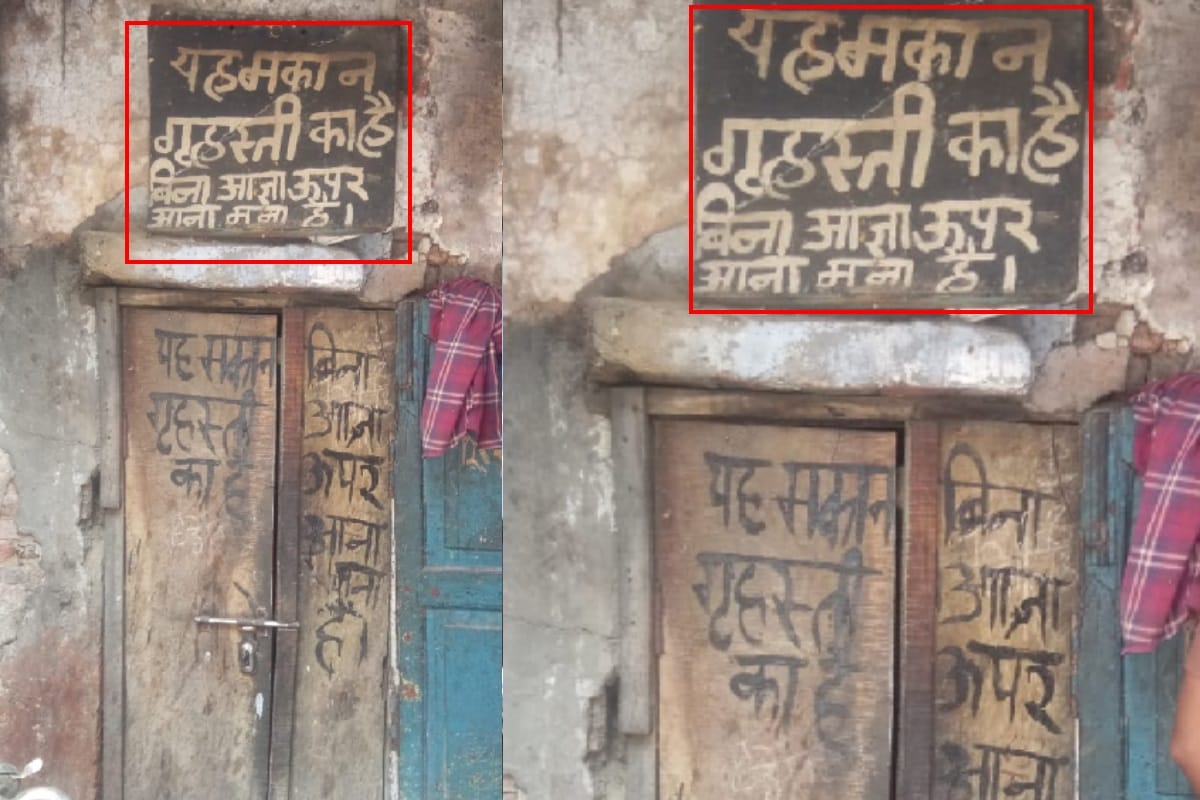 यह मकान
गृहस्ती का है
बिना आज्ञा ऊपर
आना मना है।
यह मकान
गृहस्ती
का है
बिना
आज्ञा
ऊपर
आना
मना
है।
यह मकान
गृहस्ती का है
बिना आज्ञा ऊपर
आना मना है।
यह मकान
गृहस्ती
का है
बिना
आज्ञा
ऊपर
आना